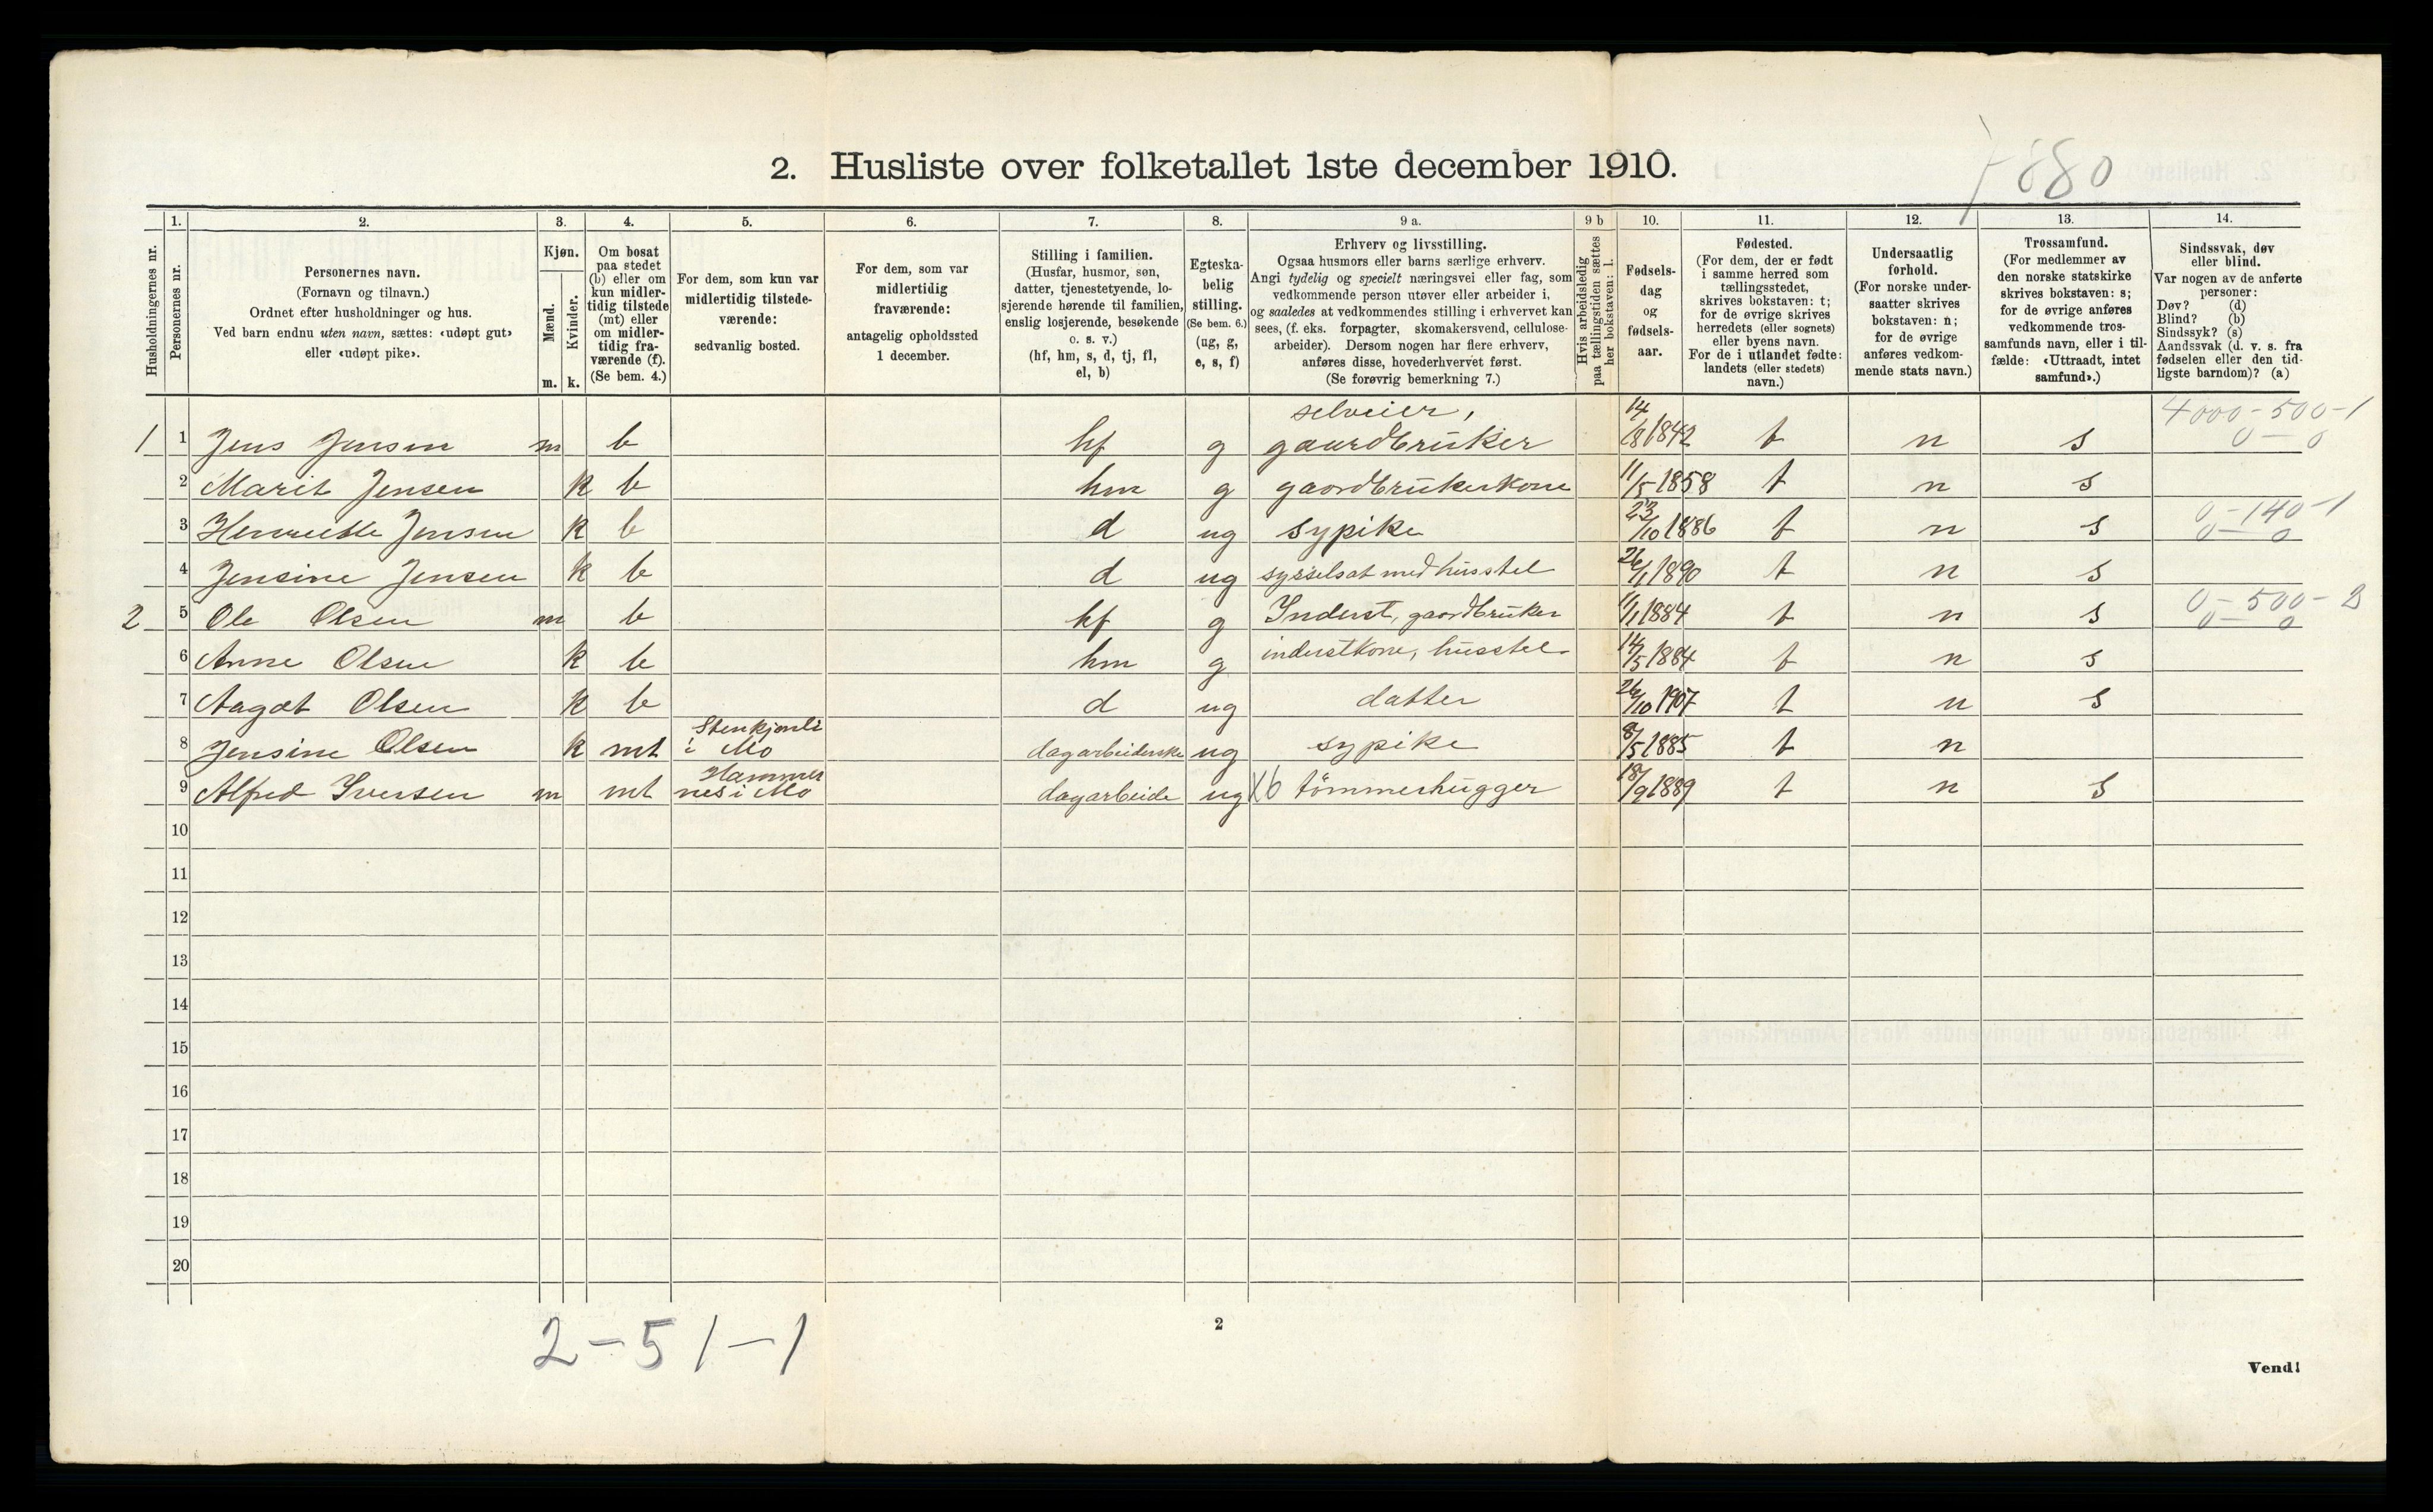 2. Husliste over folketallet 1ste december 1910.
880
Husholdningernes nr.
1. Personernes nr.
2. Personernes navn.
(Fornavn og tilnavn.)
Ordnet efter husholdninger og hus.
Ved barn endnu uten navn, sættes: «udøpt gut»
eller «udøpt pike».
3. Kjøn.
Mænd. m.
Kvinder. k.
4. Om bosat
paa stedet
(b) eller om
kun midler-
tidig tilstede
(mt) eller
om midler-
tidig fra-
værende (f).
(Se bem. 4.)
5. For dem, som kun var
midlertidig tilstede-
værende:
sedvanlig bosted.
6. For dem, som var
midlertidig
fraværende:
antagelig opholdssted
1 december.
7. Stilling i familien.
(Husfar, husmor, søn,
datter, tjenestetyende, lo-
sjerende hørende til familien,
enslig losjerende, besøkende
o. s. v.)
(hf, hm, s, d, tj, fl,
el, b)
8. Egteska-
belig
stilling.
(Se bem. 6.)
(ug, g,
e, s, f)
9 a. Erhverv og livsstilling.
Ogsaa husmors eller barns særlige erhverv.
Angi tydelig og specielt næringsvei eller fag, som
vedkommende person utøver eller arbeider i,
og saaledes at vedkommendes stilling i erhvervet kan
sees, (f. eks. forpagter, skomakersvend, cellulose-
arbeider). Dersom nogen har flere erhverv,
anføres disse, hovederhvervet først.
(Se forøvrig bemerkning 7.)
9 b Hvis arbeidsledig
paa tællingstiden sættes
her bokstaven: l.
10. Fødsels-
dag
og
fødsels-
aar.
11. Fødested.
(For dem, der er født
i samme herred som
tællingsstedet,
skrives bokstaven: t;
for de øvrige skrives
herredets (eller sognets)
eller byens navn.
For de i utlandet fødte:
landets (eller stedets)
navn.)
12. Undersaatlig
forhold.
(For norske under-
saatter skrives
bokstaven: n;
for de øvrige
anføres vedkom-
mende stats navn.)
13. Trossamfund.
(For medlemmer av
den norske statskirke
skrives bokstaven: s;
for de øvrige anføres
vedkommende tros-
samfunds navn, eller i til-
fælde: «Uttraadt, intet
samfund».)
14. Sindssvak, døv
eller blind.
Var nogen av de anførte
personer:
Døv? (d)
Blind? (b)
Sindssyk? (s)
Aandssvak (d. v. s. fra
fødselen eller den tid-
ligste barndom)? (a)
1 1 Jens Jensen m b hf g selveier, gaardbruker 14/8 1842 t n s 4000-500-1 0-0
2 Marit Jensen k b hm g gaardbrukerkone 11/5 1858 t n s
3 Henriette Jensen k b d ug sypike 23/10 1886 t n s 0-140-1 0-0
4 Jensine Jensen k b d ug sysselsat med husstel 26/1 1890 t n s
2 5 Ole Olsen m b hf g Inderst, gaardbruker 11/1 1884 t n s 0-500-2 0-0
6 Anne Olsen k b hm g inderstkone, husstel 14/5 1884 t n s
7 Aagot Olsen k b d ug datter 26/10 1907 t n s
8 Jensine Olsen k mt i Mo dagarbeiderske ug sypike 8/5 1885 t n
9 Alfred Iversen m mt Hammer nes i Mo dagarbeide ug X6 tømmerhugger 18/9 1889 t n s
10
11
12
13
14
15
16
17
18
19
20
2-5 1-1
2
Vend!